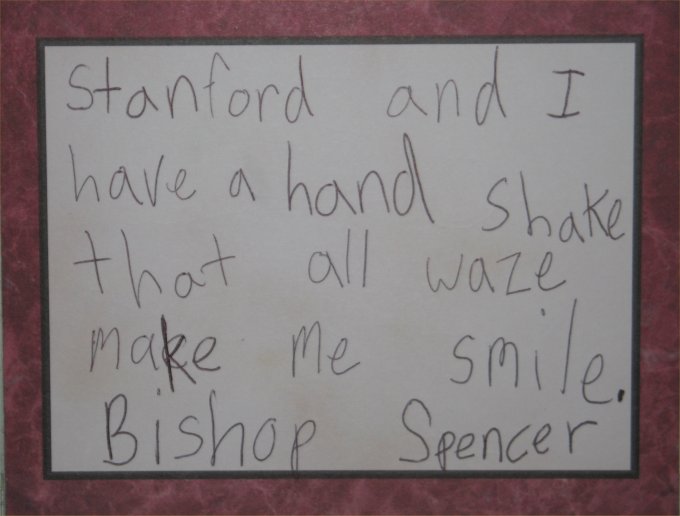 Stanford and I
have a hand shake
that all waze
make me smile.
Bishop Spencer